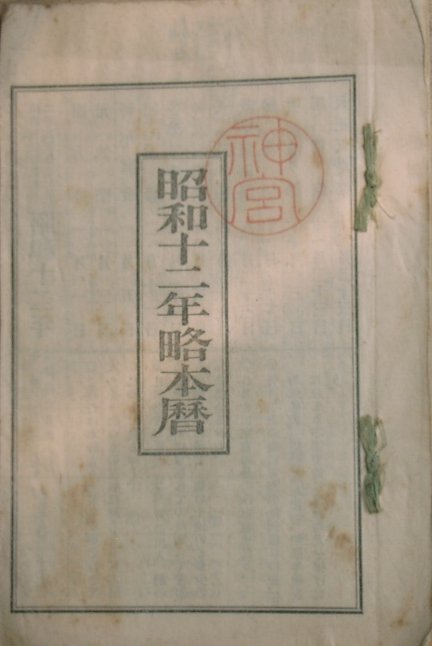 昭和十二年略本暦
神宮